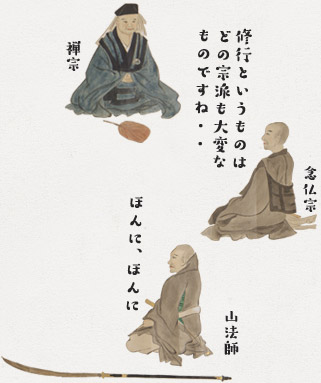 修行というものは
どの宗派も大変な
ものですね・・
禅宗
念仏宗
ほんに、ほんに
山法師